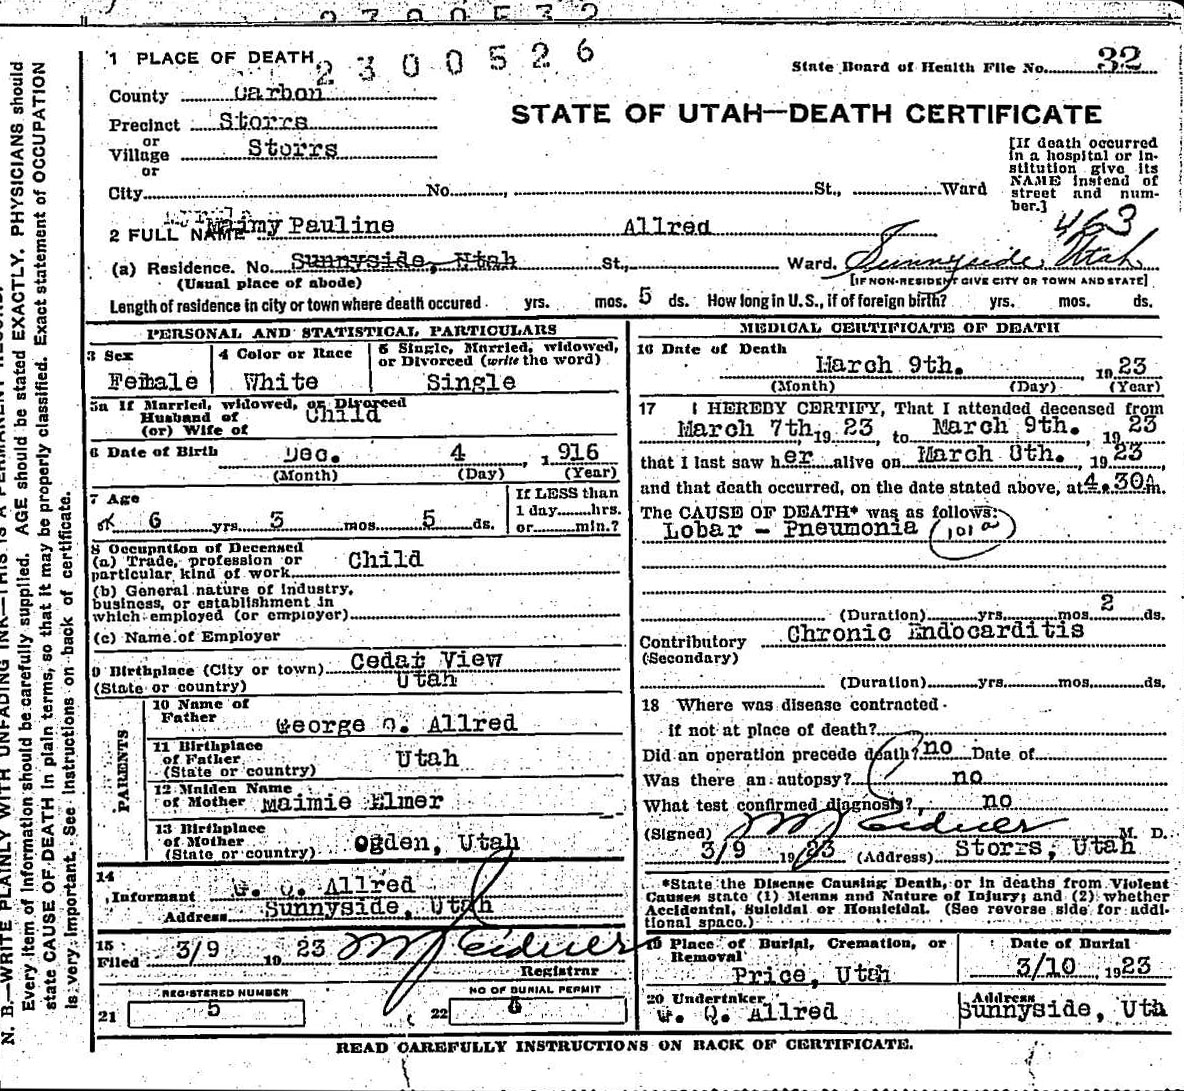 2300532
1 PLACE OF DEATH
2300526
State Board of Health File No. 32
County Carbon
STATE OF UTAH—DEATH CERTIFICATE
Precinct Storrs
or
Village Storrs
or
[If death occurred in a hospital or institution give its NAME instead of street and number.]
City No. , St., Ward
2 FULL NAME Maimy Pauline Allred
463
(a) Residence. No. Sunnyside, Utah St., Ward. Sunnyside, Utah
(Usual place of abode) [IF NON-RESIDENT GIVE CITY OR TOWN AND STATE]
Length of residence in city or town where death occured yrs. mos. 5 ds. How long in U.S., if of foreign birth? yrs. mos. ds.
PERSONAL AND STATISTICAL PARTICULARS
3 Sex
Female
4 Color or Race
White
5 Single, Married, widowed,
or Divorced (write the word)
Single
5a If Married, widowed, or Divorced
Husband of Child
(or) Wife of
6 Date of Birth Dec. 4, 1916
(Month) (Day) (Year)
7 Age
6 yrs. 3 mos. 5 ds.
If LESS than
1 day......hrs.
or......min.?
8 Occupation of Deceased
(a) Trade, profession or Child
particular kind of work
(b) General nature of industry,
business, or establishment in
which employed (or employer)
(c) Name of Employer
9 Birthplace (City or town) Cedar View
(State or country) Utah
PARENTS
10 Name of
Father George Q. Allred
11 Birthplace
of Father Utah
(State or country)
12 Maiden Name
of Mother Maimie Elmer
13 Birthplace
of Mother Ogden, Utah
(State or country)
14
Informant G. Q. Allred
Address Sunnyside, Utah
15
Filed 3/9 1923
Registrar
REGISTERED NUMBER
21 5
NO OF BURIAL PERMIT
22 5
MEDICAL CERTIFICATE OF DEATH
16 Date of Death
March 9th. 1923
(Month) (Day) (Year)
17 I HEREBY CERTIFY, That I attended deceased from
March 7th, 1923, to March 9th. 1923
that I last saw her alive on March 8th. 1923,
and that death occurred, on the date stated above, at 4.30A m.
The CAUSE OF DEATH* was as follows:
Lobar - Pneumonia 101a
(Duration) yrs. mos. 2 ds.
Contributory Chronic Endocarditis
(Secondary)
(Duration) yrs. mos. ds.
18 Where was disease contracted
if not at place of death?
Did an operation precede death? no Date of
Was there an autopsy? no
What test confirmed diagnosis? no
(Signed) M. D.
3/9 1923 (Address) Storrs, Utah
*State the Disease Causing Death, or in deaths from Violent
Causes state (1) Means and Nature of Injury; and (2) whether
Accidental, Suicidal or Homicidal. (See reverse side for addi-
tional space.)
19 Place of Burial, Cremation, or
Removal
Price, Utah
Date of Burial
3/10 1923
20 Undertaker
G. Q. Allred
Address
Sunnyside, Uta
READ CAREFULLY INSTRUCTIONS ON BACK OF CERTIFICATE.
N. B.—WRITE PLAINLY WITH UNFADING INK—THIS IS A PERMANENT RECORD.
Every item of information should be carefully supplied. AGE should be stated EXACTLY. PHYSICIANS should
state CAUSE OF DEATH in plain terms, so that it may be properly classified. Exact statement of OCCUPATION
is very important. See instructions on back of certificate.